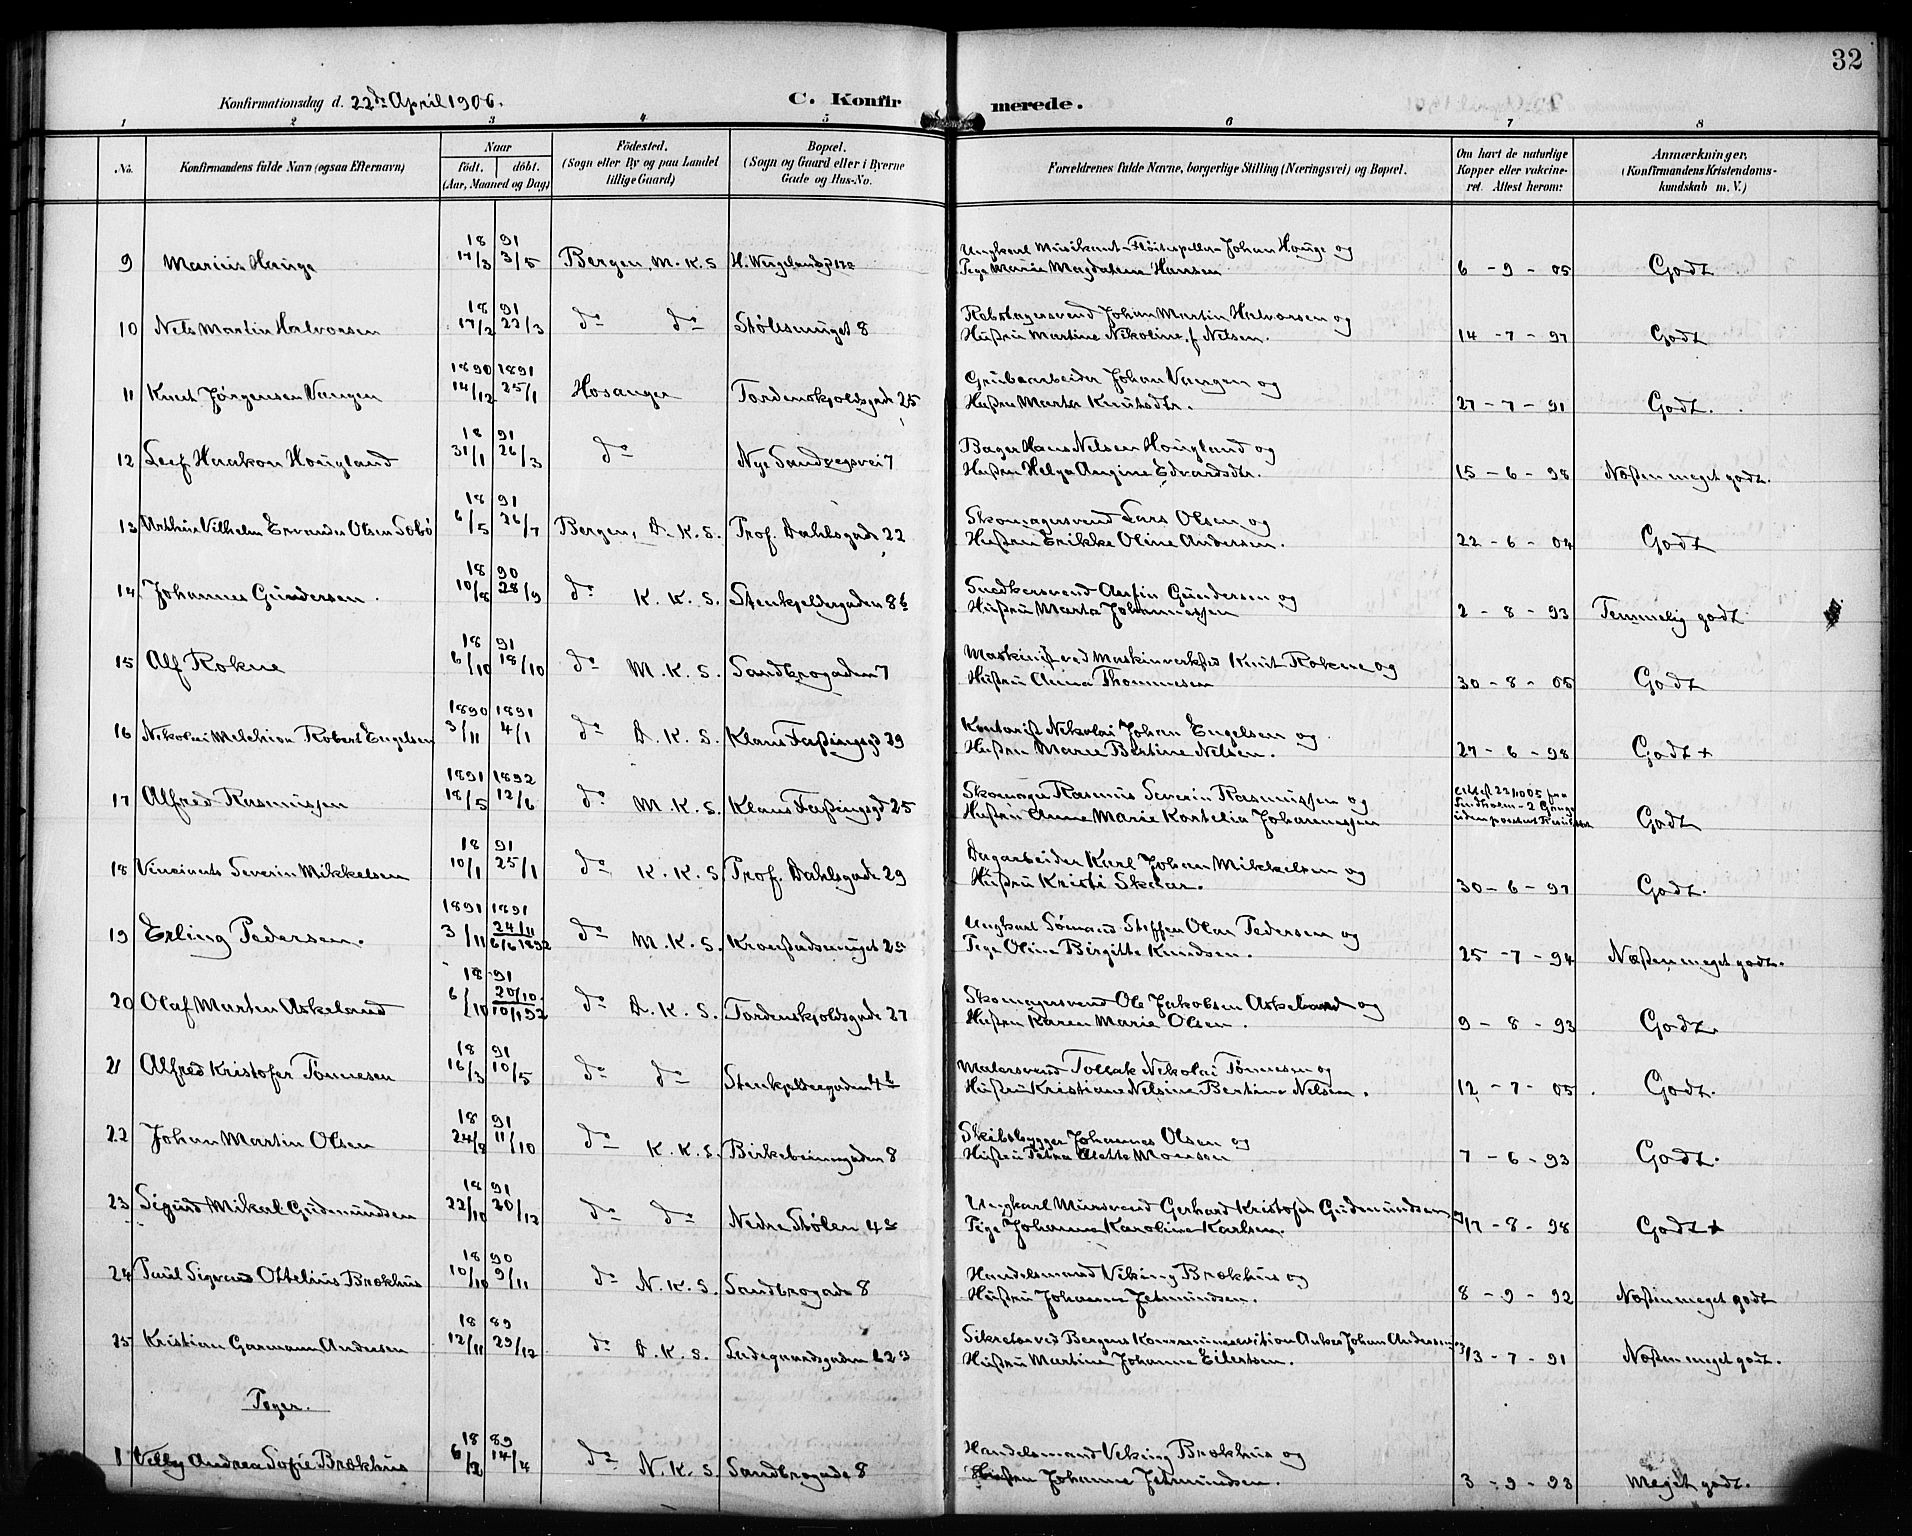 32
Konfirmationsdag d. 22de April 1906.
C. Konfirmerede.
1 2 3 4 5 6 7 8
No. Konfirmandens fulde Navn (ogsaa Efternavn) Naar født. døbt. (Aar, Maaned og Dag) Fødested. (Sogn eller By og paa Landet tillige Gaard) Bopæl. (Sogn og Gaard eller i Byerne Gade og Hus-No. Forældrenes fulde Navne, borgerlige Stilling (Næringsvei) og Bopæl. Om havt de naturlige Kopper eller vakcineret. Attest herom: Anmærkninger. (Konfirmandens Kristendomskundskab m. V.)
9 Marius Hauge 18 91 17/3 3/5 Bergen, M.K.S H. Wergelandsg
Ungkarl Musikant-Fløitespiller Johan Hauge og
Pige Marie Magdalene Hansen 6 - 9 - 05 Godt
10 Nels Martin Halvorsen 18 91 17/2 22/3 do do Stølesmuget 8
Rebslagersvend Johan Martin Halvorsen og
Hustru Martine Nikoline f Nilsen. 14 - 7 - 97 Godt
11 Knut Jørgensen Vangen 1890 1891 14/12 25/1 Hosanger Tordenskjoldsgade 25
Grubearbeider Johan Vangen og
Hustru Marta Knutsdtr. 27 - 7 - 91 Godt.
12 Leif Haakon Hougland 18 91 31/1 26/3 do Nye Sandviksvei 7
Bager Hans Nelsen Hougland og
Hustru Helga Angine Edvardsdtr. 15 - 6 - 98 Næsten meget godt.
13 Arthur Vilhelm Evander Olsen Sæbø 18 91 6/5 26/7 Bergen, D.K.S. Prof. Dahlsgade 22
Skomagersvend Lars Olsen og
Hustru Erikke Oline Andersen. 22 - 6 - 04 Godt
14 Johannes Gundersen. 18 90 10/8 28/9 do K.K.S. Stenkjeldergaden 8b
Snedkersvend Anfin Gundersen og
Hustru Marta Johannessen 2 - 8 - 93 Temmelig godt
15 Alf Rokne 18 91 6/10 18/10 do M.K.S. Sandbrogaden 7
Maskinist ved Maskinverksted Knut Rokne og
Hustru Anna Thommesen 30 - 8 - 05 Godt
16 Nikolai Melchior Robert Engelsen 1890 1891 3/11 4/1 do D.K.S. Klaus Fastingsgd 29
Kontorist Nikolai Johan Engelsen og
Hustru Marie Bertine Nelsen. 27 - 6 - 98 Godt +
17 Alfred Rasmussen 1891 1892 18/5 12/6 do M.K.S. Klaus Fastingsgd 25
Skomager Rasmus Severin Rasmussen og
Hustru Anne Marie Kornelia Johannessen Godt
18 Vincents Severin Mikkelsen 18 91 10/1 25/1 do K.K.S. Prof. Dahlsgade 29
Dagarbeider Karl Johan Mikkelsen og
Hustru Kristi Skaar. 30 - 6 - 97 Godt.
19 Erling Pedersen. 1891 1891 3/11 24/11 6/6 1892 do M.K.S. Kroenstadsmuget 25
Ungkarl Sømand Steffen Olai Pedersen og
Pige Olina Birgitte Knudsen. 25 - 7 - 94 Næsten meget godt.
20 Olaf Marten Askeland 18 91 6/10 20/10 10/1 92 do D.K.S. Tordenskjoldsgade 27
Skomagersvend Ole Jakobsen Askeland og
Hustru Karen Marie Olsen. 9 - 8 - 93 Godt.
21 Alfred Kristofer Tønnesen 18 91 16/3 10/5 do do Stenkjeldergaden 4b
Malersvend Tollak Nikolai Tønnesen og
Hustru Kristiane Nelsine Bertine Nelsen. 12 - 7 - 05 Godt.
22 Johan Martin Olsen 18 91 24/8 11/10 do K.K.S. Birkebeinergaden 8
Skibsbygger Johannes Olsen og
Hustru Petra Alette Monsen 7 - 6 - 93 Godt.
23 Sigurd Mikal Gudmundsen 18 91 22/10 20/12 do do Nedre Stølen 4a
Ungkarl Mursvend Gerhard Kristofer Gudmundsen og
Pige Johanne Karoline Karlsen. 17 - 8 - 98 Godt +
24 Paul Sigvard Ottelius Brækhus 18 90 10/10 9/11 do N.K.S. Sandbrogade 8
Handelsmand Viking Brækhus og
Hustru Johanne Jetmundsen. 8 - 9 - 92 Næsten meget godt
25 Kristian Garmann Andersen 18 89 12/11 29/12 do D.K.S. Ladegaardsgaden 623
Sekretær ved Bergens Anker Johan Andersen og
Hustru Martine Johanne Eilertsen. 13 - 7 - 91 Næsten meget godt.
Piger.
1 Villy Andrea Sofie Brækhus 18 89 6/2 14/4 do N.K.S. Sandbrogade 8
Handelsmand Viking Brækhus og
Hustru Johanne Jetmundsen. 3 - 9 - 93 Meget godt.